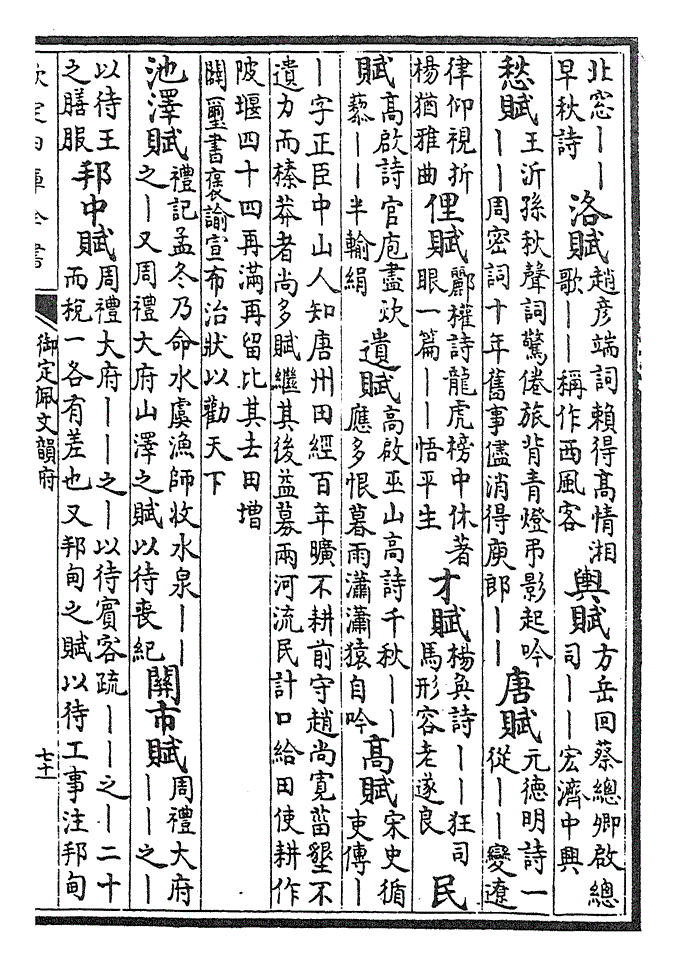 北窓｜｜早秋詩 洛賦 趙彦端詞賴得髙情湘歌｜｜稱作西風客 輿賦 方岳回蔡總卿啟總司｜｜宏濟中興
愁賦 王沂孫秋聲詞驚倦旅背青燈弔影起吟｜｜周密詞十年舊事儘消得庾郎｜｜ 唐賦 元德明詩一從｜｜變遼
律仰視折楊猶雅曲 俚賦 酈權詩龍虎榜中休著眼一篇｜｜悟平生 才賦 楊奐詩｜｜狂司馬形容老遂良 民
賦 高啟詩官庖盡炊藜｜｜半輸絹 遺賦 高啟巫山高詩千秋｜｜應多恨暮雨瀟瀟猿自吟 高賦 宋史循吏傳｜
｜字正臣中山人知唐州田經百年曠不耕前守趙尚寛菑墾不遺力而榛莽者尚多賦繼其後益募兩河流民計口給田使耕作
陂堰四十四再滿再留比其去田增闢璽書褒諭宣布治狀以勸天下
池澤賦 禮記孟冬乃命水虞漁師收水泉｜｜之｜又周禮大府山澤之賦以待喪紀 關市賦 周禮大府｜｜之｜
以待王之膳服 邦中賦 周禮大府｜｜之｜以待賓客疏｜｜之｜二十而稅一各有差也又邦甸之賦以待工事注邦甸
欽定四庫全書
御定佩文韻府
七十